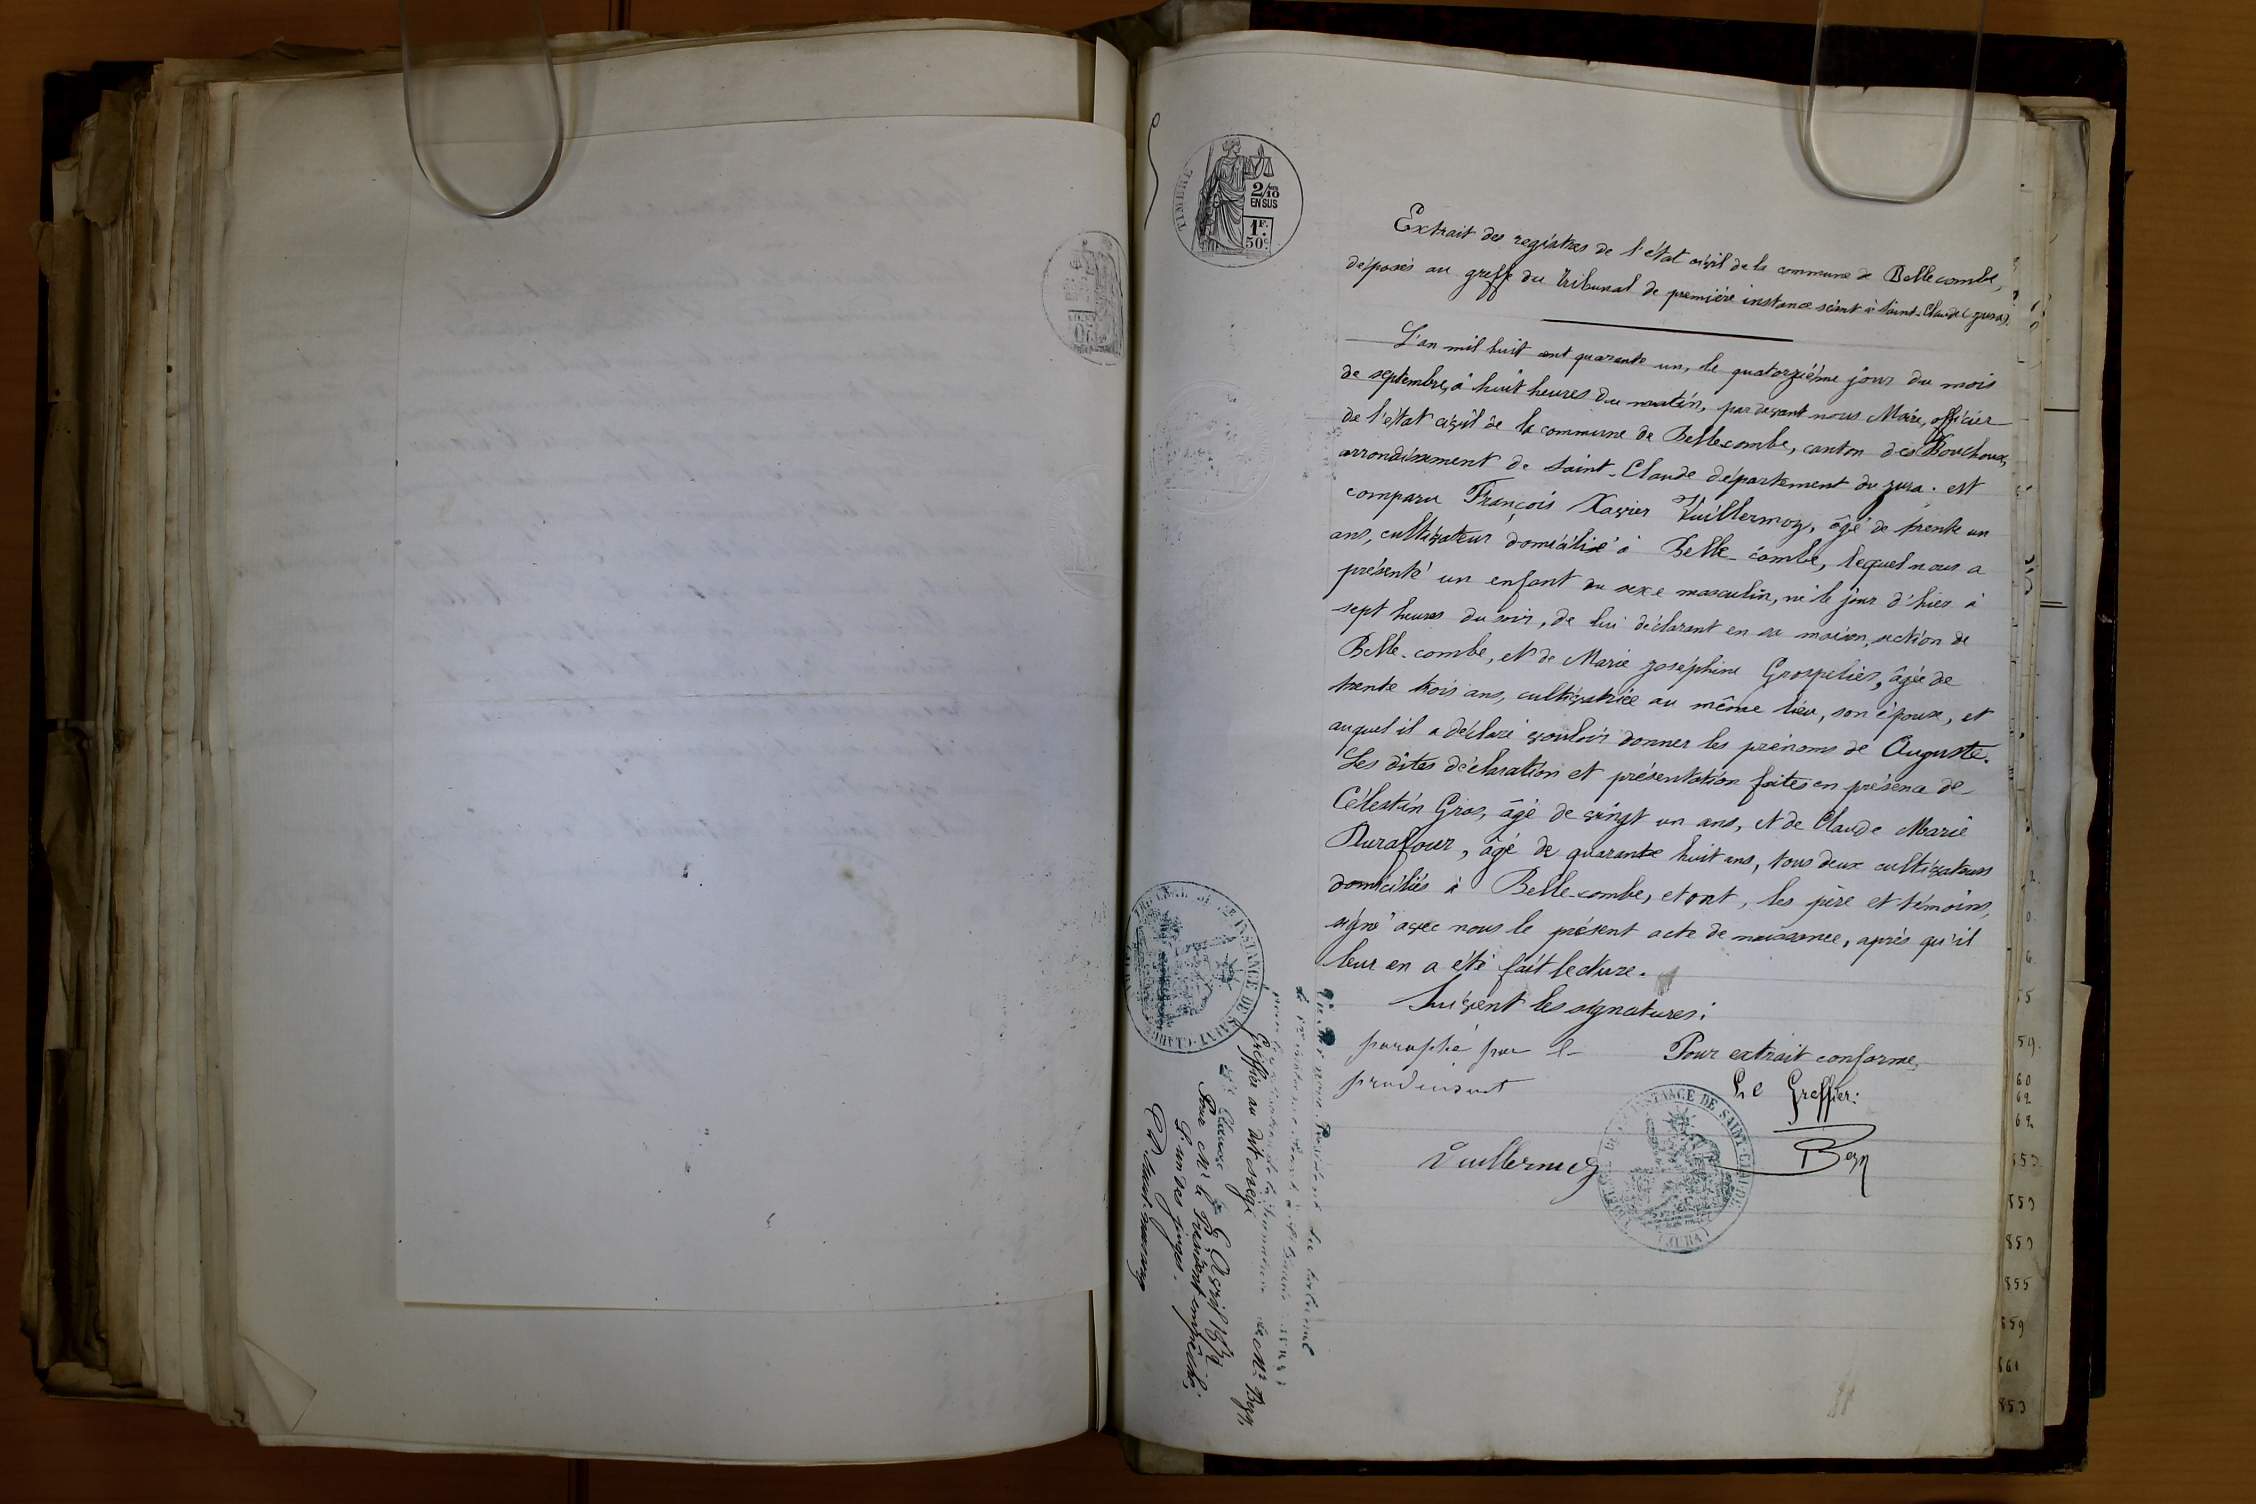 TIMBRE
2/10
EN SUS
1F.
50c.
Extrait des registres de l'état civil de la commune de Bellecombe,
déposés au greffe du Tribunal de première instance séant à Saint-Claude (Jura).
L'an mil huit cent quarante un, le quatorzième jour du mois
de septembre, à huit heures du matin, par devant nous Maire, officier
de l'état civil de la commune de Belle-combe, canton des Bouchoux,
arrondissement de Saint-Claude département du Jura. est
comparu François Xavier Vuillermoz, âgé de trente un
ans, cultivateur domicilié à Belle-combe, lequel nous a
présenté un enfant du sexe masculin, né le jour d'hier à
sept heures du soir, de lui déclarant en sa maison, section de
Belle-combe, et de Marie Joséphine Grospelier, âgée de
trente trois ans, cultivatrice au même lieu, son époux, et
auquel il a déclaré vouloir donner les prénoms de Auguste.
Les dites déclaration et présentation faites en présence de
Célestin Gros, âgé de vingt un ans, et de Claude Marie
Durafour, âgé de quarante huit ans, tous deux cultivateurs
domiciliés à Belle-combe, et ont, les père et témoins,
signé avec nous le présent acte de naissance, après qu'il
leur en a été fait lecture.
Suivent les signatures:
paraphé par le
Pour extrait conforme,
Le Greffier:
Vuillermoz
INSTANCE DE SAINT-CLAUDE
(JURA)
INSTANCE DE SAINT-CLAUDE
Président du tribunal
de Mr
Greffier au dit siège
Avril 187
Pour Mr le Président empêché,
L'un des juges.
59.
60
62
62
853
853
853
855
859
861
853